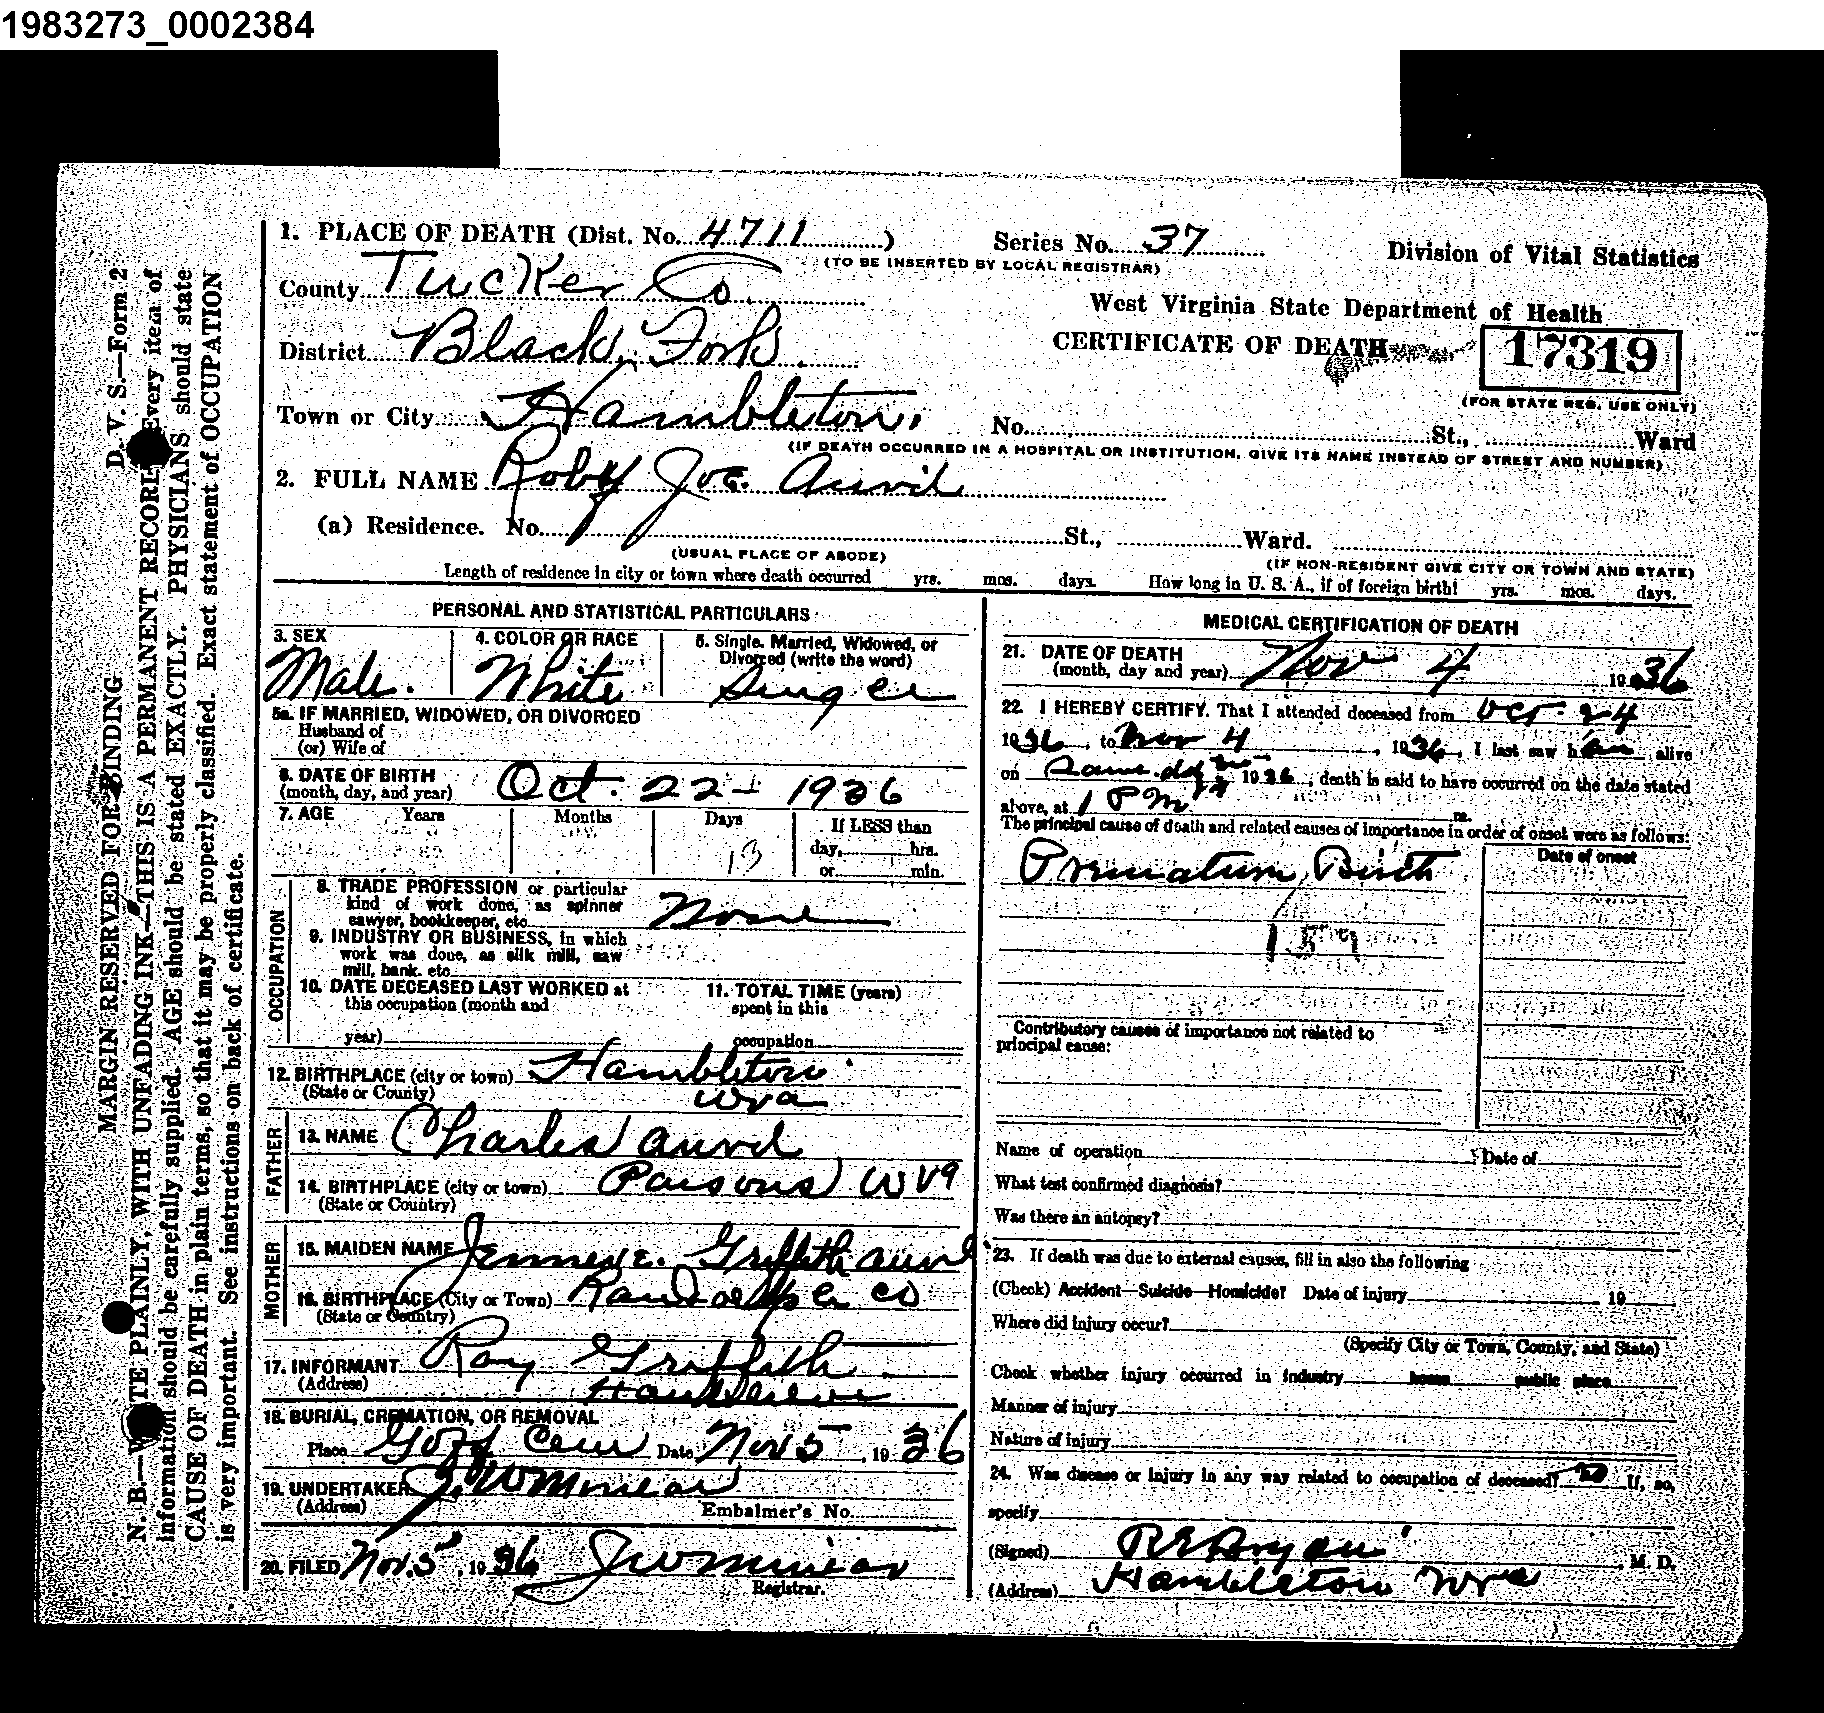 1983273_0002384
1. PLACE OF DEATH (Dist. No. 4711)
Series No. 37
(TO BE INSERTED BY LOCAL REGISTRAR)
Division of Vital Statistics
County Tucker Co.
West Virginia State Department of Health
CERTIFICATE OF DEATH
17319
(FOR STATE REG. USE ONLY)
District Black Fork
Town or City Hambleton.
No. St., Ward
(IF DEATH OCCURRED IN A HOSPITAL OR INSTITUTION, GIVE ITS NAME INSTEAD OF STREET AND NUMBER)
2. FULL NAME Roby Joe Auvil
(a) Residence. No. St., Ward.
(USUAL PLACE OF ABODE)
(IF NON-RESIDENT GIVE CITY OR TOWN AND STATE)
Length of residence in city or town where death occurred yrs. mos. days. How long in U. S. A., if of foreign birth? yrs. mos. days.
PERSONAL AND STATISTICAL PARTICULARS
3. SEX
Male.
4. COLOR OR RACE
White
5. Single. Married, Widowed, or
Divorced (write the word)
5a. IF MARRIED, WIDOWED, OR DIVORCED
Husband of
(or) Wife of
6. DATE OF BIRTH
(month, day, and year) Oct. 22 - 1936
7. AGE Years Months Days If LESS than
13 day, hrs.
or min.
OCCUPATION
8. TRADE PROFESSION or particular
kind of work done, as spinner
sawyer, bookkeeper, etc. None
9. INDUSTRY OR BUSINESS, in which
work was done, as silk mill, saw
mill, bank. etc
10. DATE DECEASED LAST WORKED at
this occupation (month and
year)
11. TOTAL TIME (years)
spent in this
occupation
12. BIRTHPLACE (city or town) Hambleton
(State or County) W Va
FATHER
13. NAME Charles Auvil
14. BIRTHPLACE (city or town) Parsons W Va
(State or Country)
MOTHER
15. MAIDEN NAME Griffith Auvil
16. BIRTHPLACE (City or Town) Randolph Co
(State or Country)
17. INFORMANT Ray Griffith
(Address) Hambleton
18. BURIAL, CREMATION, OR REMOVAL
Place Cem Date Nov 5, 1936
19. UNDERTAKER J W Minear
(Address) Embalmer's No.
20. FILED Nov. 5, 1936 J W Minear
Registrar.
MEDICAL CERTIFICATION OF DEATH
21. DATE OF DEATH
(month, day and year) Nov 4 1936
22. I HEREBY CERTIFY. That I attended deceased from Oct. 24
1936, to Nov 4, 1936, I last saw him alive
on same day 1936, death is said to have occurred on the date stated
above, at 1 PM m.
The principal cause of death and related causes of importance in order of onset were as follows:
Date of onset
Premature Birth
159
Contributory causes of importance not related to
principal cause:
Name of operation Date of
What test confirmed diagnosis?
Was there an autopsy?
23. If death was due to external causes, fill in also the following
(Check) Accident—Suicide—Homicide? Date of injury 19
Where did injury occur?
(Specify City or Town, County, and State)
Check whether injury occurred in industry home public place
Manner of injury
Nature of injury
24. Was disease or injury in any way related to occupation of deceased? no If, so,
specify
(Signed) , M. D.
(Address) Hambleton W Va
D. V. S.—Form 2
MARGIN RESERVED FOR BINDING
N. B.—WRITE PLAINLY, WITH UNFADING INK—THIS IS A PERMANENT RECORD. Every item of
information should be carefully supplied. AGE should be stated EXACTLY. PHYSICIANS should state
CAUSE OF DEATH in plain terms, so that it may be properly classified. Exact statement of OCCUPATION
is very important. See instructions on back of certificate.